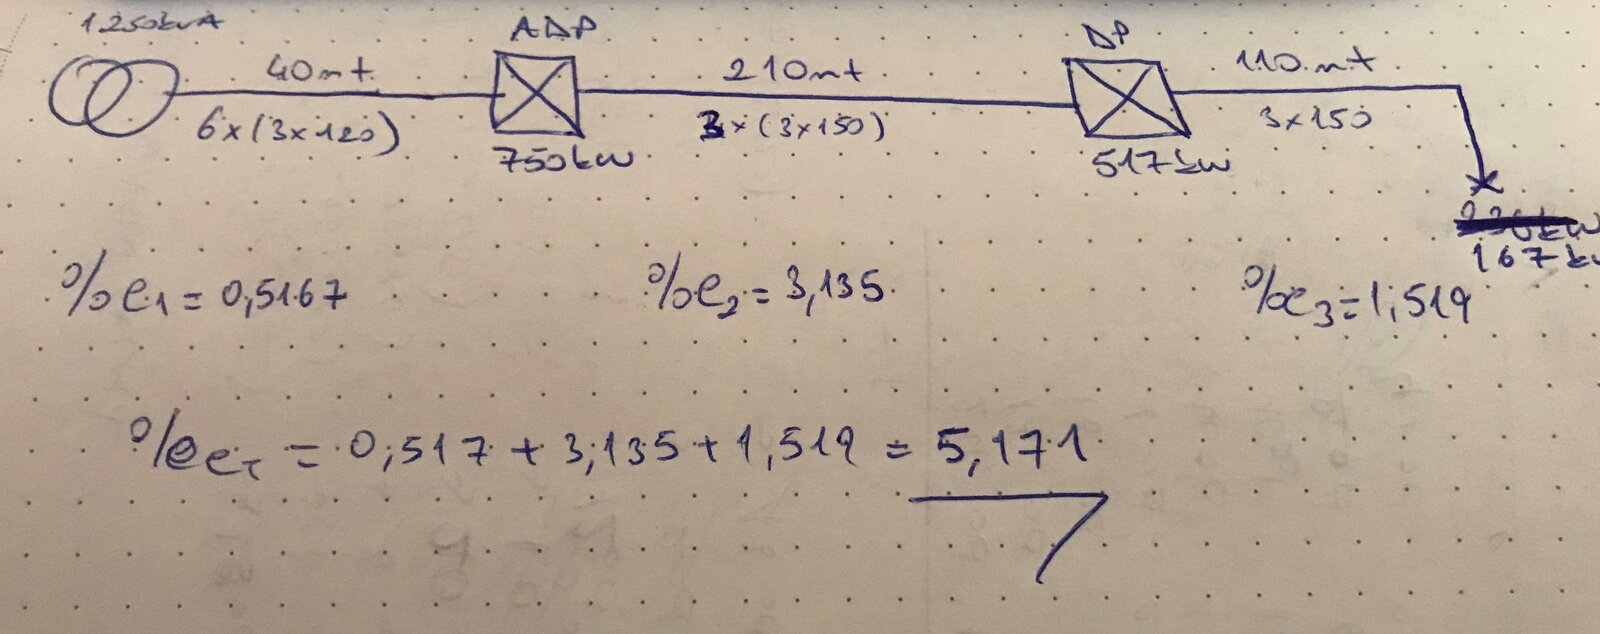 1250kVA
ADP
DP
40mt
210mt
110mt
6x(3x120)
3x(3x150)
3x150
750kw
517kw
167k
%e1 = 0,5167
%e2 = 3,135
%e3 = 1,519
= 0,517 + 3,135 + 1,519 = 5,171